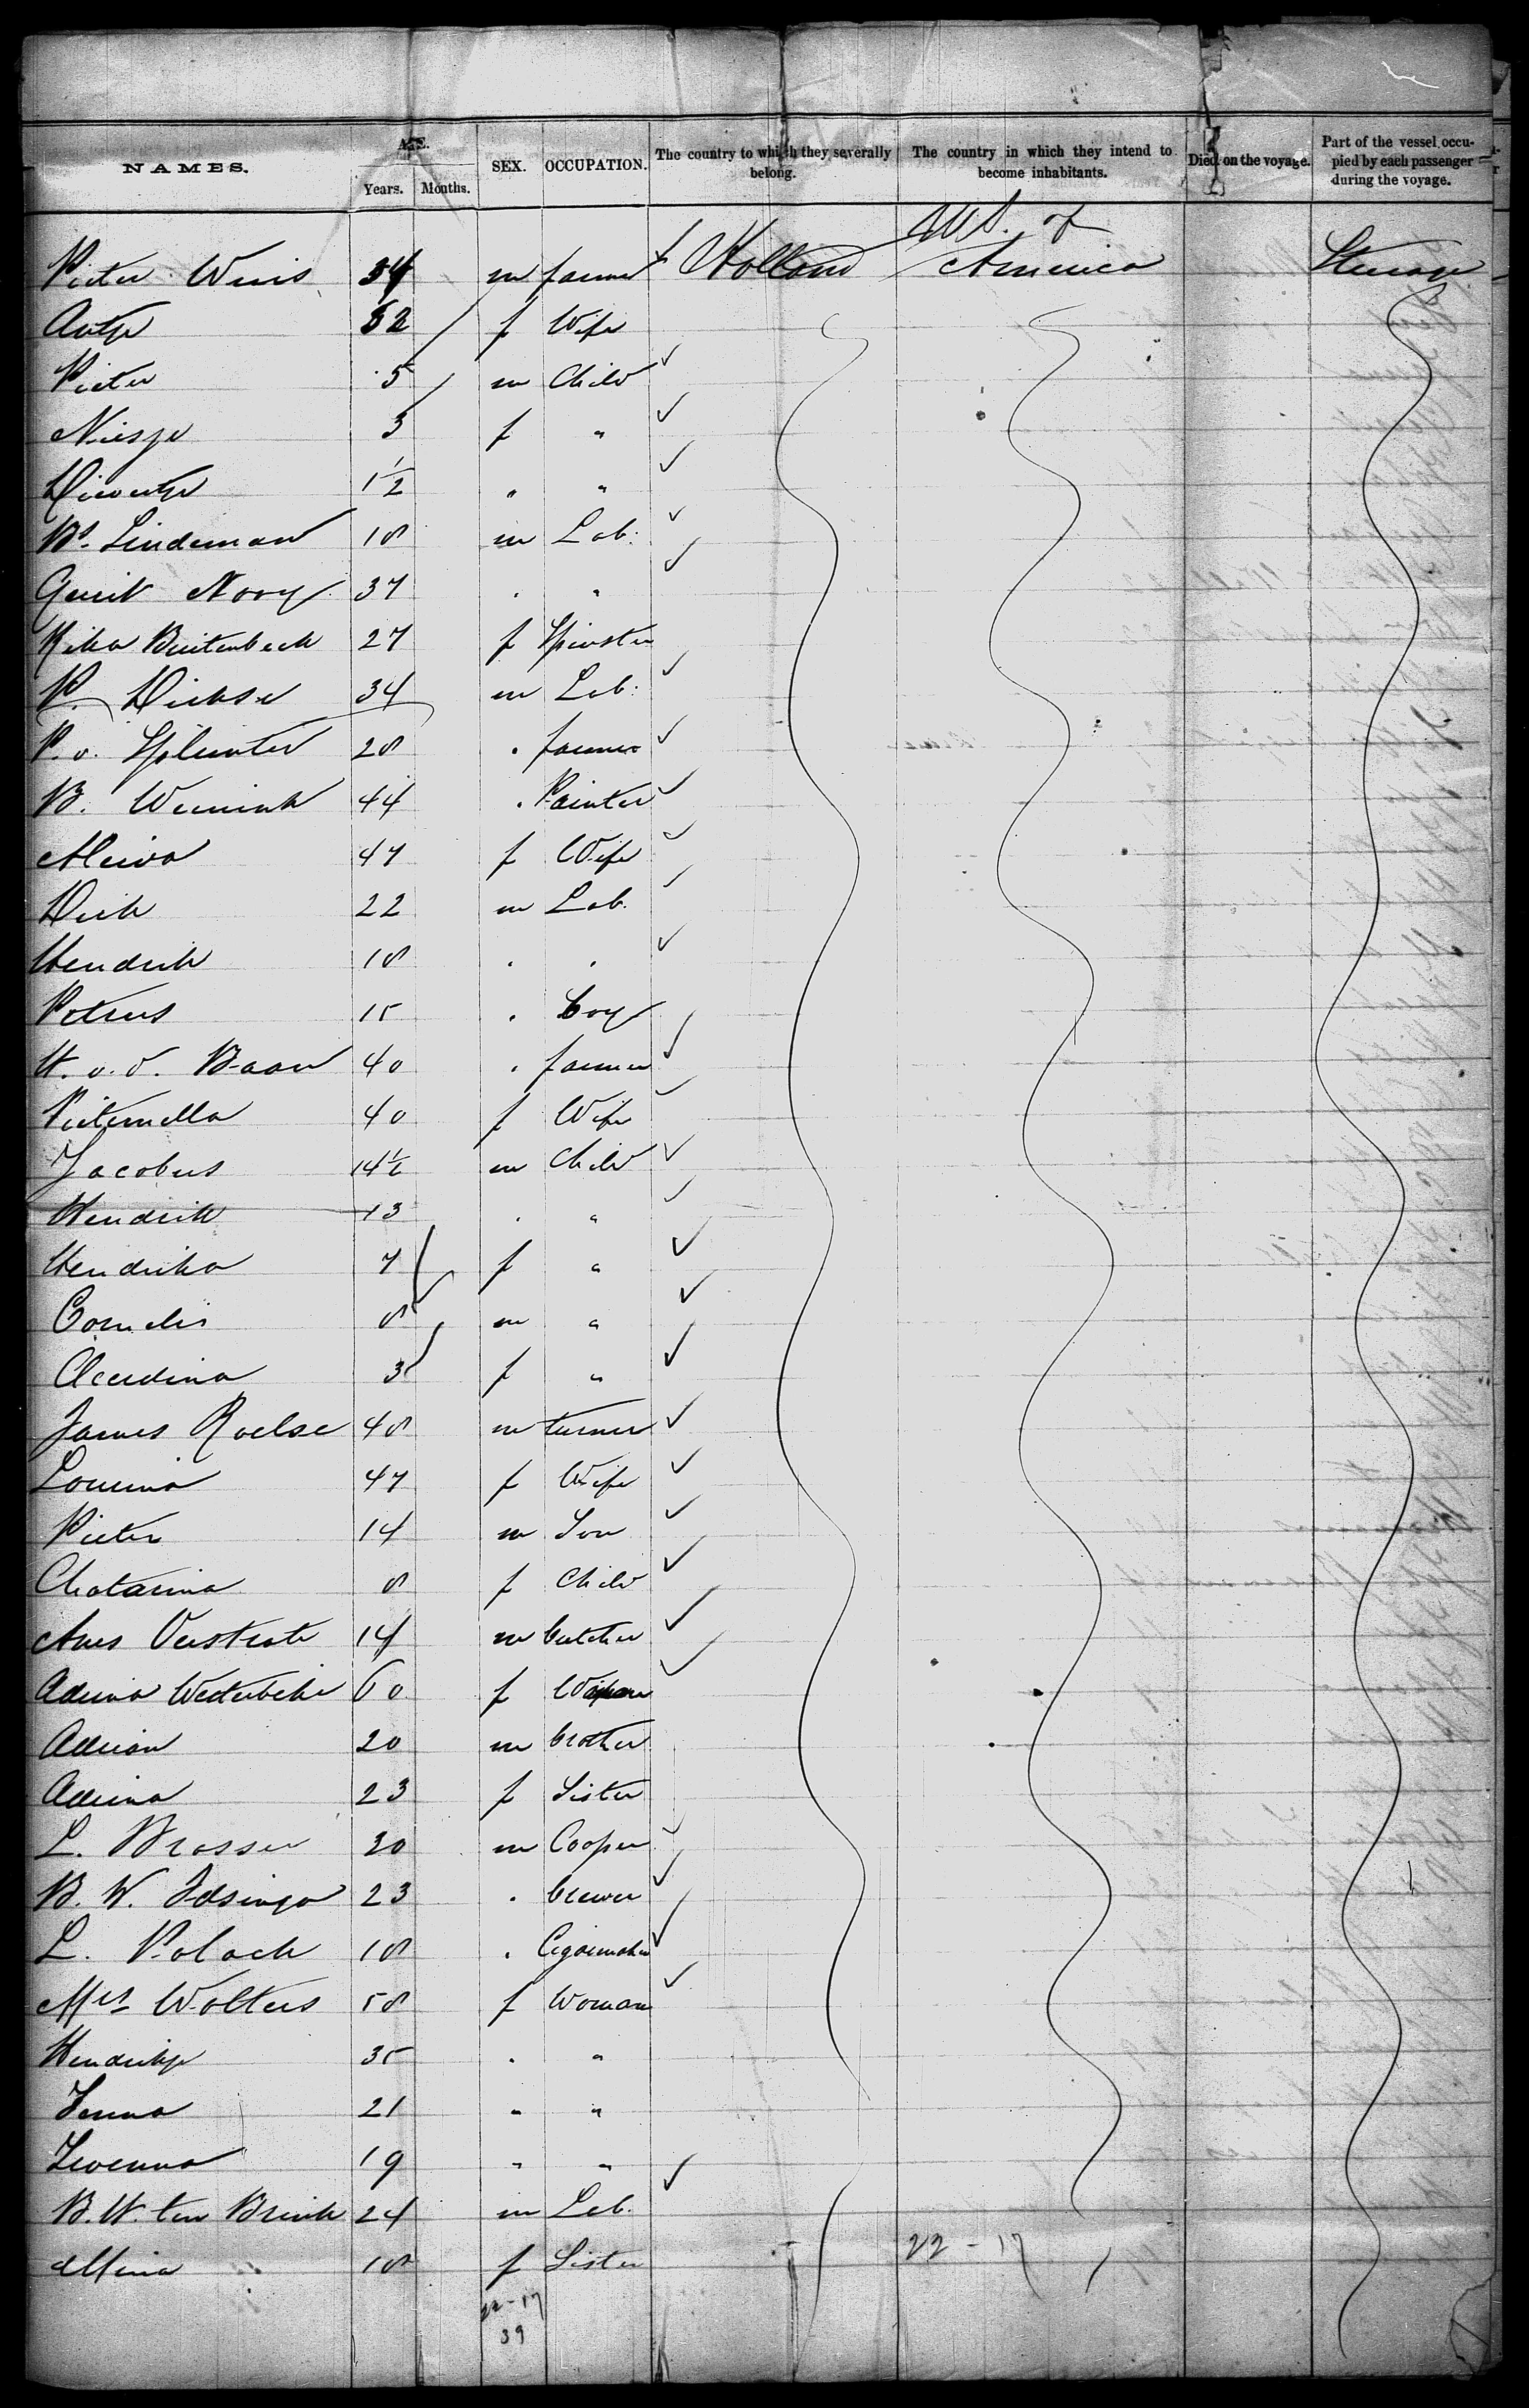 NAMES. AGE. SEX. OCCUPATION. The country to which they severally belong. The country in which they intend to become inhabitants. Died on the voyage. Part of the vessel occupied by each passenger during the voyage.
Years. Months.
U.S. of
Pieter 34 m farmer Holland America Steerage
Antje 32 f Wife
Pieter 5 m Child
Niesje 3 f "
1½ " "
Bt. Lindeman 18 m Lab.
Gerrit Nooy 37 . "
Rika Buitenbeek 27 f Spinster
P. Dirkse 34 m Lab.
P. v. Splunter 28 . farmer
B. Wernink 44 . Painter
47 f Wife
Dirk 22 m Lab.
Hendrik 18 . .
Petrus 15 . boy
H. v. d. Baan 40 . farmer
Pieternella 40 f Wife
Jacobus 14½ m Child
Hendrik 13 . "
Hendrika 7 f "
Cornelis 8 m "
3 f "
James Roelse 48 m turner
47 f Wife
Pieter 14 m Son
Chatarina 8 f Child
Verstrate 14 m butcher
Adriana Westerbeke 60 f
Adrian 20 m brother
Adriana 23 f Sister
L. Brosser 30 m Cooper
B. W. 23 . brewer
L. Polack 18 . Cigarmaker
Mrs Wolters 58 f Woman
Hendrikje 35 . "
21 " "
19 " "
B. H. ten Brink 24 m Lab.
Mina 18 f Sister
22 - 17
22 - 17
39